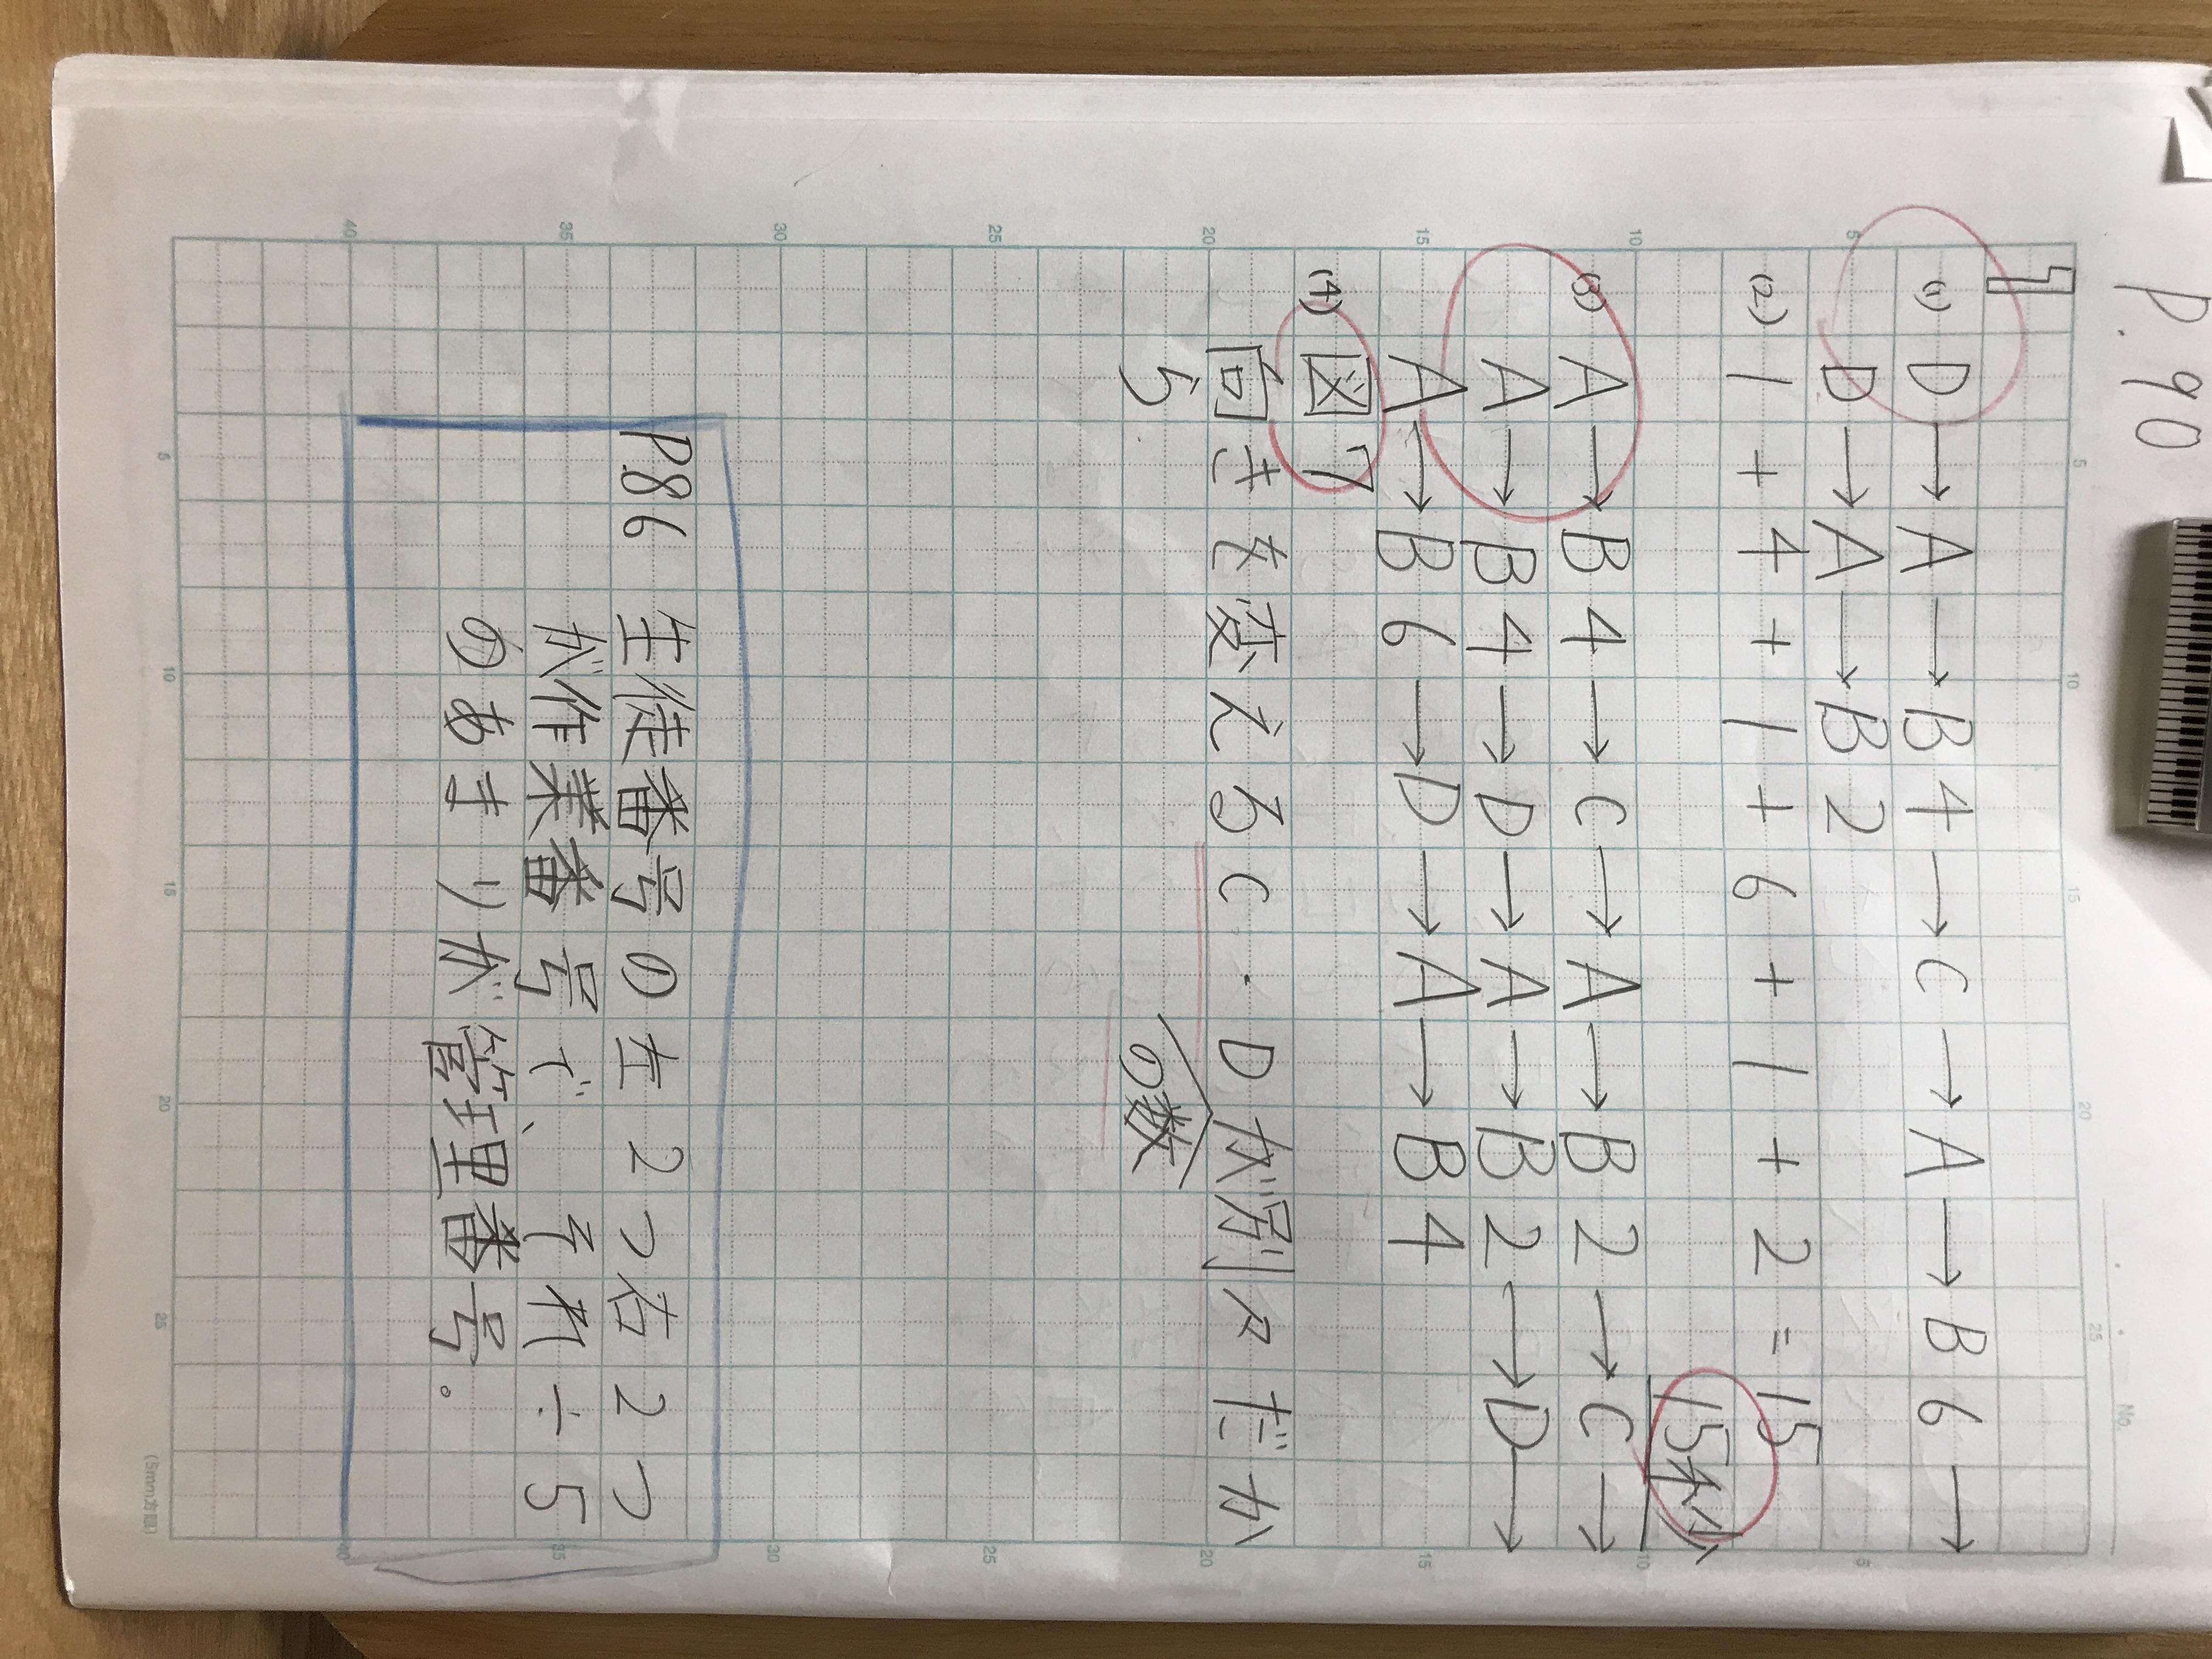 P.90
4
(1) D→A→B4→C→A→B6→
D→A→B2
(2) 1+4+1+6+1+2=15
15秒
(3) A→B4→C→A→B2→C→
A→B4→D→A→B2→D→
A→B6→D→A→B4
(4) 図7
向きを変えるC・Dが別々だか
の数
ら
P86 生徒番号の左2つ右2つ
が作業番号で、それ÷5
のあまりが管理番号。
5
10
15
20
25
30
35
40
5
10
15
20
25
30
35
40
5
10
15
20
25
5
10
15
20
25
No.
(5mm方眼)